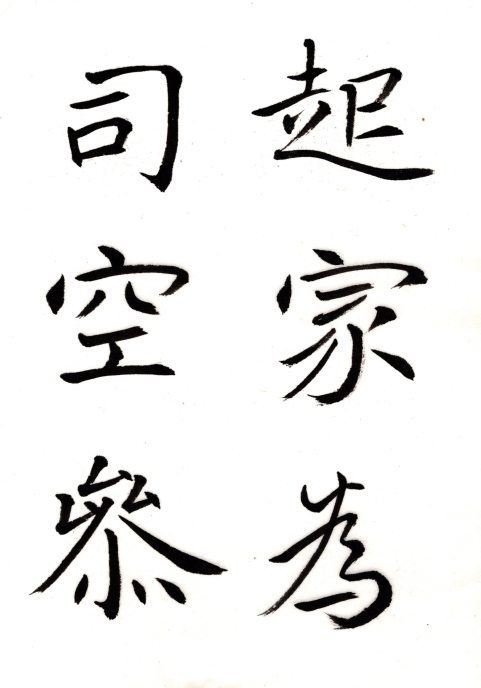 起家為
司空參